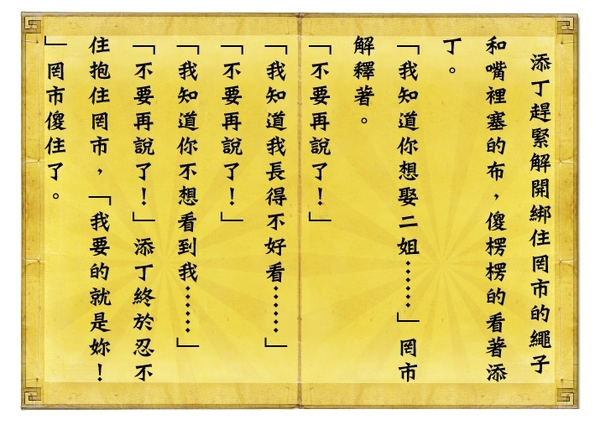 添丁趕緊解開綁住罔市的繩子
和嘴裡塞的布，傻楞楞的看著添
丁。
「我知道你想娶二姐……」罔市
解釋著。
「不要再說了！」
「我知道我長得不好看……」
「不要再說了！」
「我知道你不想看到我……」
「不要再說了！」添丁終於忍不
住抱住罔市，「我要的就是妳！
」罔市傻住了。